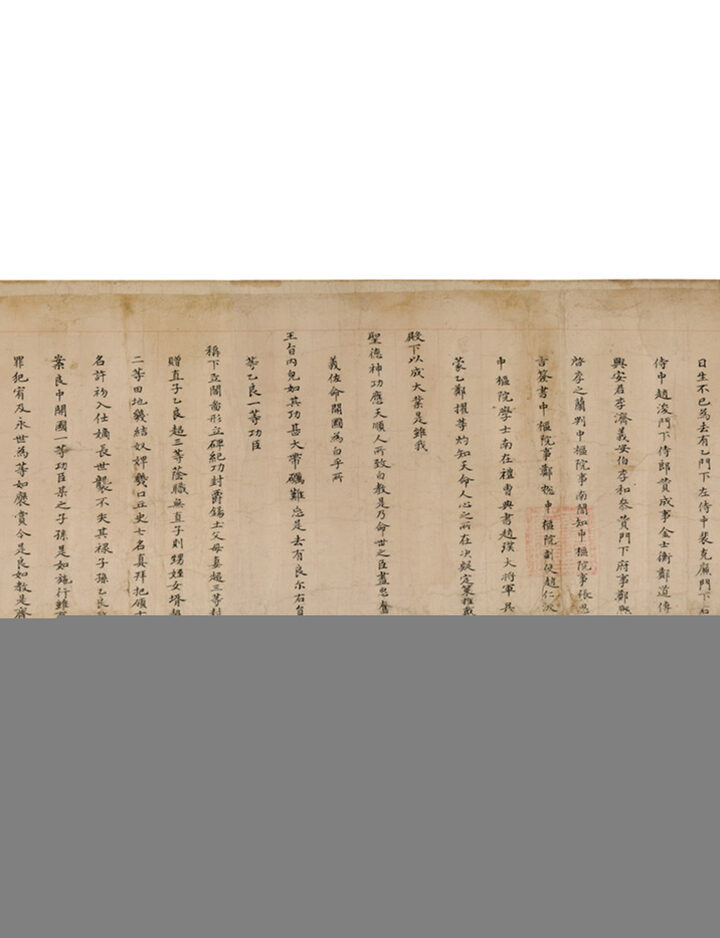 日生不已為去有乙門下左侍中裴克廉門下右
侍中趙浚門下侍郎贊成事金士衡鄭道傳
興安君李濟義安伯李和叅贊門下府事鄭熙
啓李之蘭判中樞院事南誾知中樞院事張思
吉簽書中樞院事鄭摠中樞院副使趙仁沃
中樞院學士南在禮曹典書趙璞大將軍吳
蒙乙鄭擢等灼知天命人心之所在決疑定策推戴
殿下以成大業是雖我
聖德神功應天順人所致白教是乃命世之臣盡忠奮
義佐命開國為白乎所
王旨內皃如其功甚大帶礪難忘是去有良尔右負
等乙良一等功臣
稱下立閣啚形立碑紀功封爵錫土父母妻超三等封
贈直子乙良超三等蔭職無直子則甥姪女壻超
二等田地幾結奴婢幾口丘史七名真拜把領十
名許初入仕嫡長世襲不失其祿子孫乙良
案良中開國一等功臣某之子孫是如施行雖有
罪犯宥及永世為等如褒賞令是良如教是齊